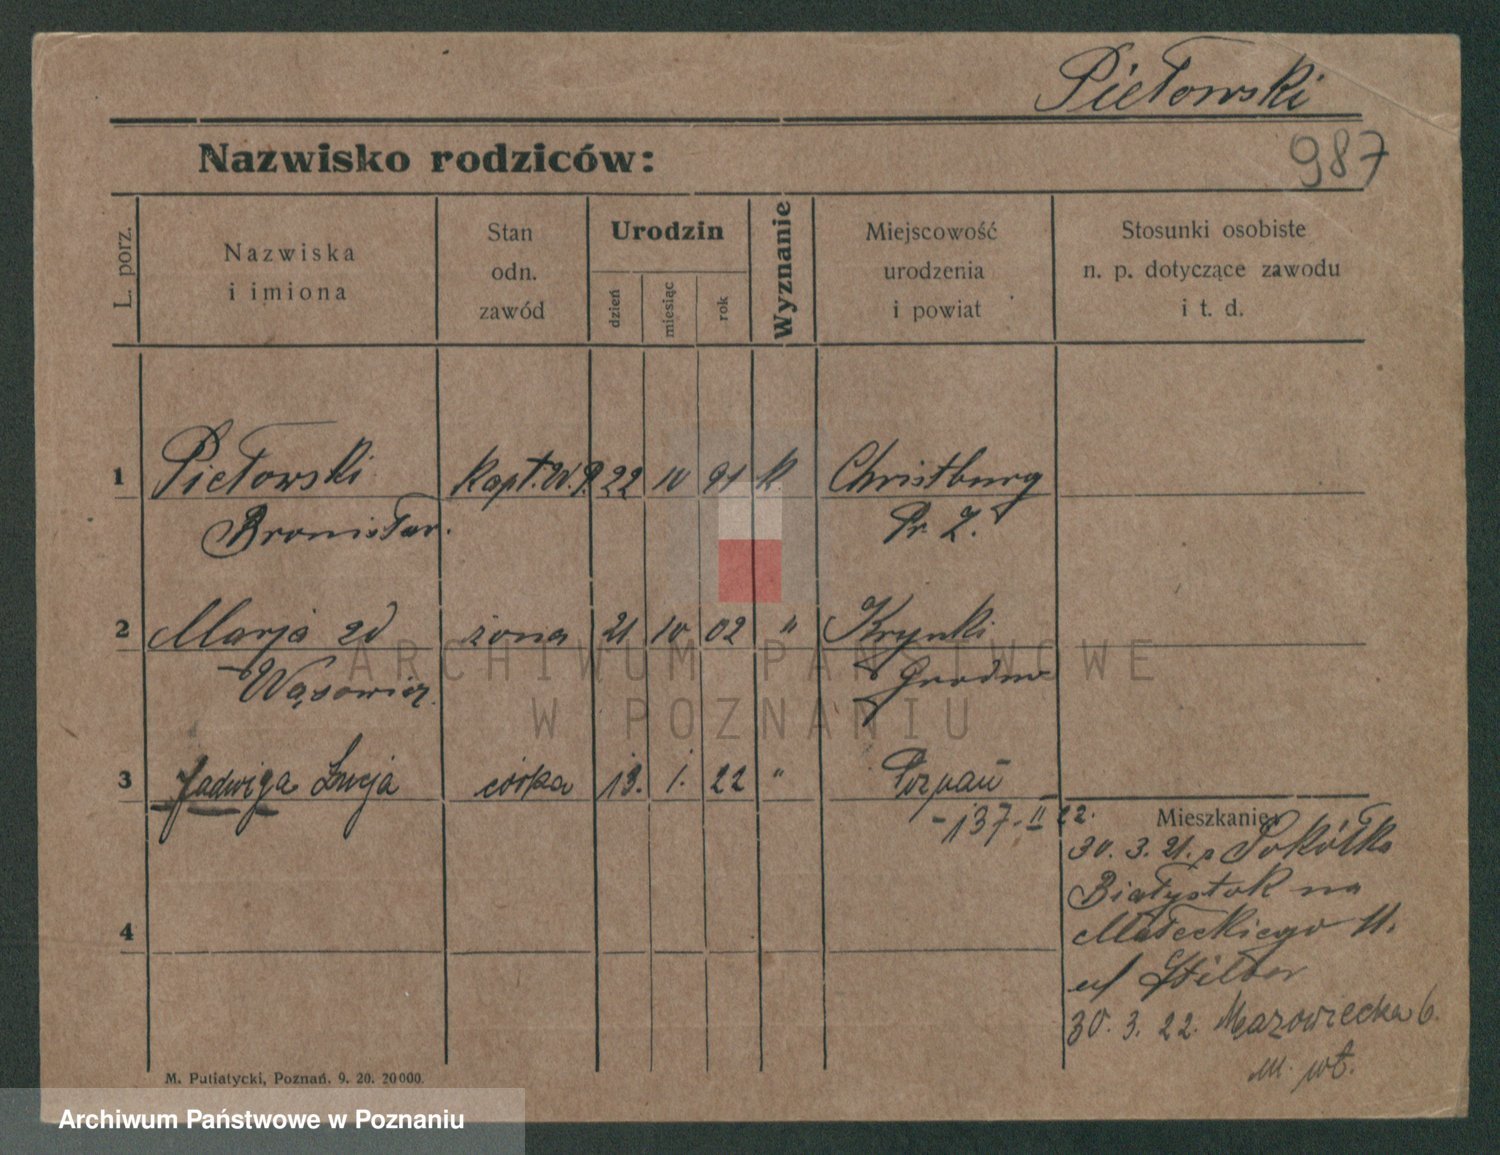 Piełowski
987
Nazwisko rodziców:
L. porz.
Nazwiska
i imiona
Stan
odn.
zawód
Urodzin
dzień
miesiąc
rok
Wyznanie
Miejscowość
urodzenia
i powiat
Stosunki osobiste
n. p. dotyczące zawodu
i t. d.
1 Piełowski kapt. W.P. 22 10 91 k Christburg
Bronisław. Pr. Z.
2 Marja zd żona 21 10 02 " Krynki
Wąsowicz. Grodno
3 Jadwiga Lucja córka 13. 1. 22 " Poznań
-137-II 22.
Mieszkanie
30. 3. 21. z Sokółka
Białystok na
Małeckiego 11.
4
u/ Stiller
30. 3. 22. Mazowiecka 6.
m. wł.
M. Putiatycki, Poznań. 9. 20. 20000.
ARCHIWUM PAŃSTWOWE
W POZNANIU
Archiwum Państwowe w Poznaniu